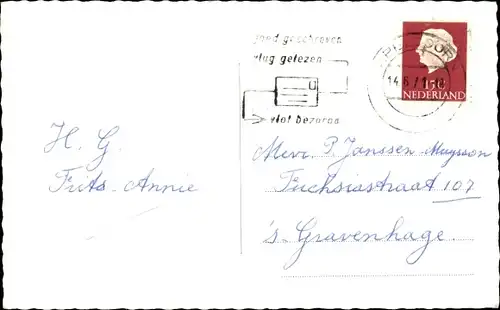 goed geschreven
vlug gelezen
vlot bezorgd
14.6.71
NEDERLAND
H. G.
Frits-Annie
Mevr. P. Janssen-Muysson
Fuchsiastraat 107
's Gravenhage